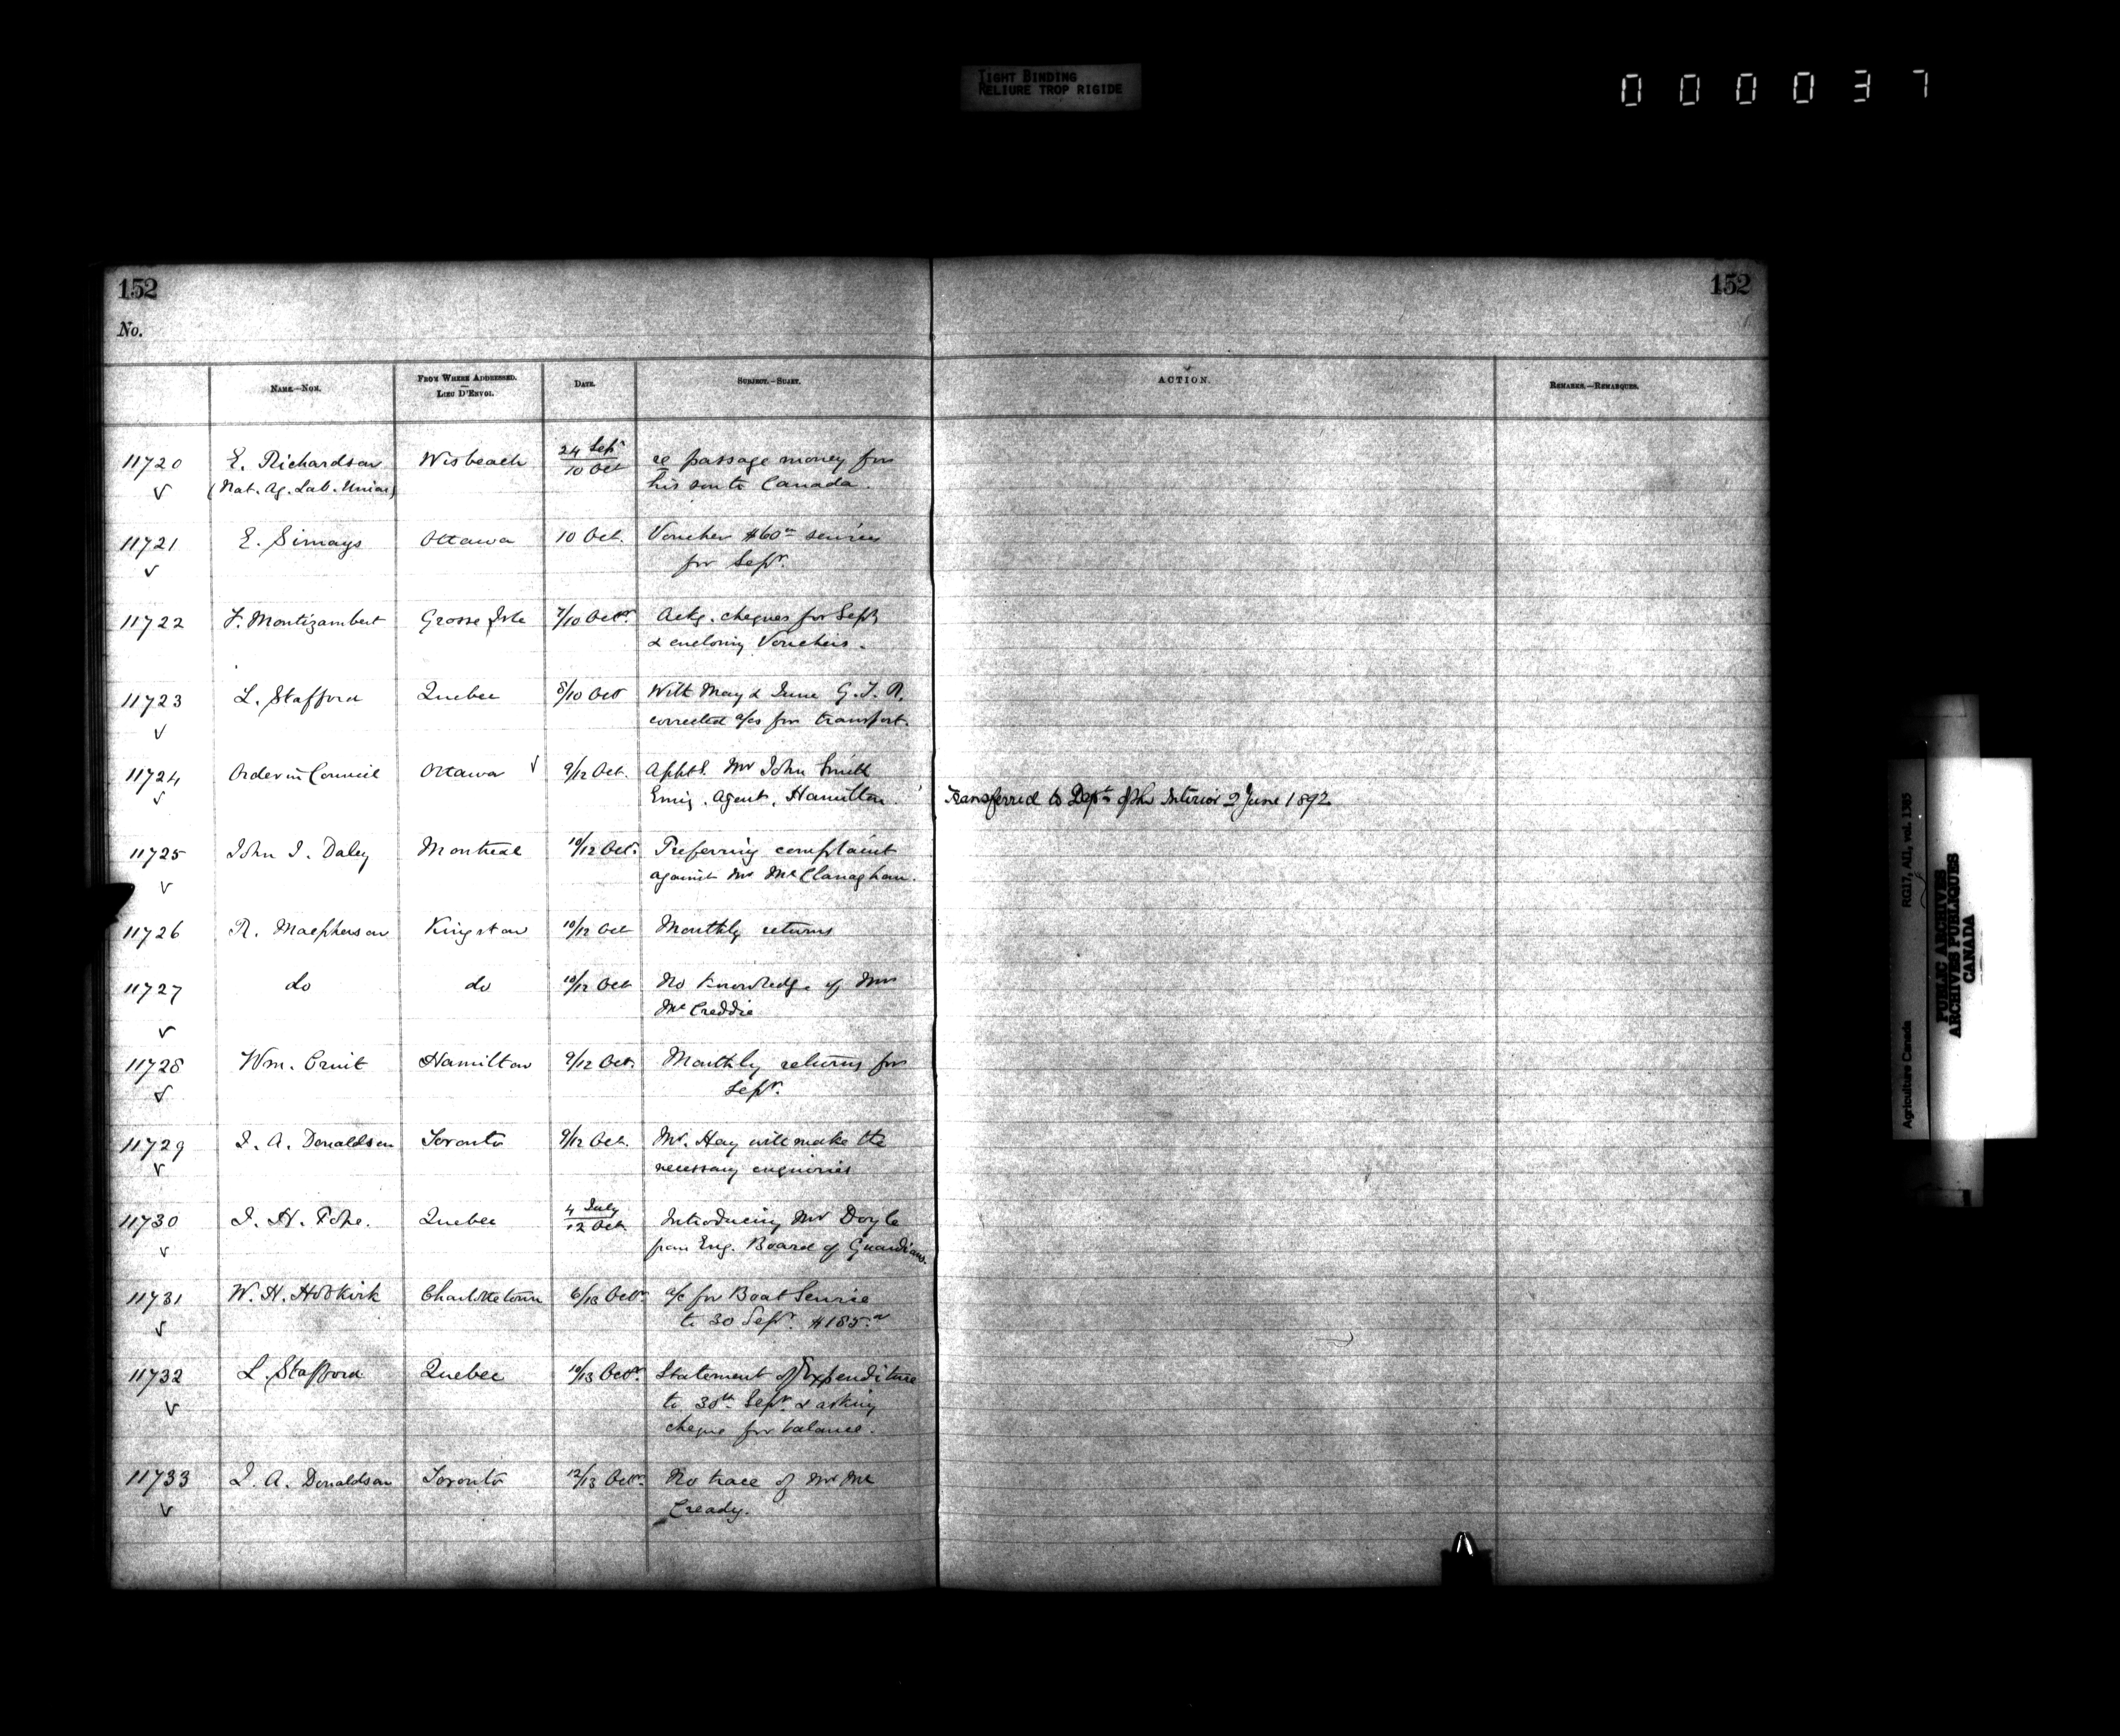 TIGHT BINDING
RELIURE TROP RIGIDE
000037
152
152
No.
NAME.—NOM.
FROM WHERE ADDRESSED.
—
LIEU D'ENVOI.
DATE.
SUBJECT.—SUJET.
ACTION.
REMARKS.—REMARQUES.
11720 E. Richardson Wisbeach 24 Sept re passage money for
(Nat. Ag. Lab. Union) 10 Oct his son to Canada.
11721 E. Simays Ottawa 10 Oct. Voucher $60 services
for Sepr.
11722 F. Montizambert Grosse Isle 7/10 Octr. Ackg. cheques for Sepr
& enclosing Vouchers.
11723 L. Stafford Quebec 8/10 Oct With May & June G.T.R.
corrected a/cs for transport.
11724 Order in Council Ottawa 9/12 Oct. Appt. Mr John Smith
Emig. Agent, Hamilton. Transferred to Dept of the Interior 2 June 1892
11725 John J. Daley Montreal 10/12 Oct. Preferring complaint
against Mr McClanaghan.
11726 R. Macpherson Kingston 10/12 Oct Monthly returns
11727 do do 10/12 Oct No knowledge of Mrs
McCreddie
11728 Wm. Hamilton 9/12 Oct. Monthly returns for
Sepr.
11729 J. A. Donaldson Toronto 9/12 Oct. Mr. Hay will make the
necessary enquiries
11730 J. H. Pope. Quebec 4 July Introducing Mr Doyle
12 Oct. from Eng. Board of Guardians.
11731 W. H. Hobkirk Charlottetown 6/13 Octr a/c for Boat Service
to 30 Sepr. $185.
11732 L. Stafford Quebec 10/13 Octr. Statement of Expenditure
to 30th Sepr & asking
cheque for balance.
11733 J. A. Donaldson Toronto 12/13 Octr. No trace of Mr Mc
Cready.
Agriculture Canada RG17, AII, vol. 1385
PUBLIC ARCHIVES
ARCHIVES PUBLIQUES
CANADA